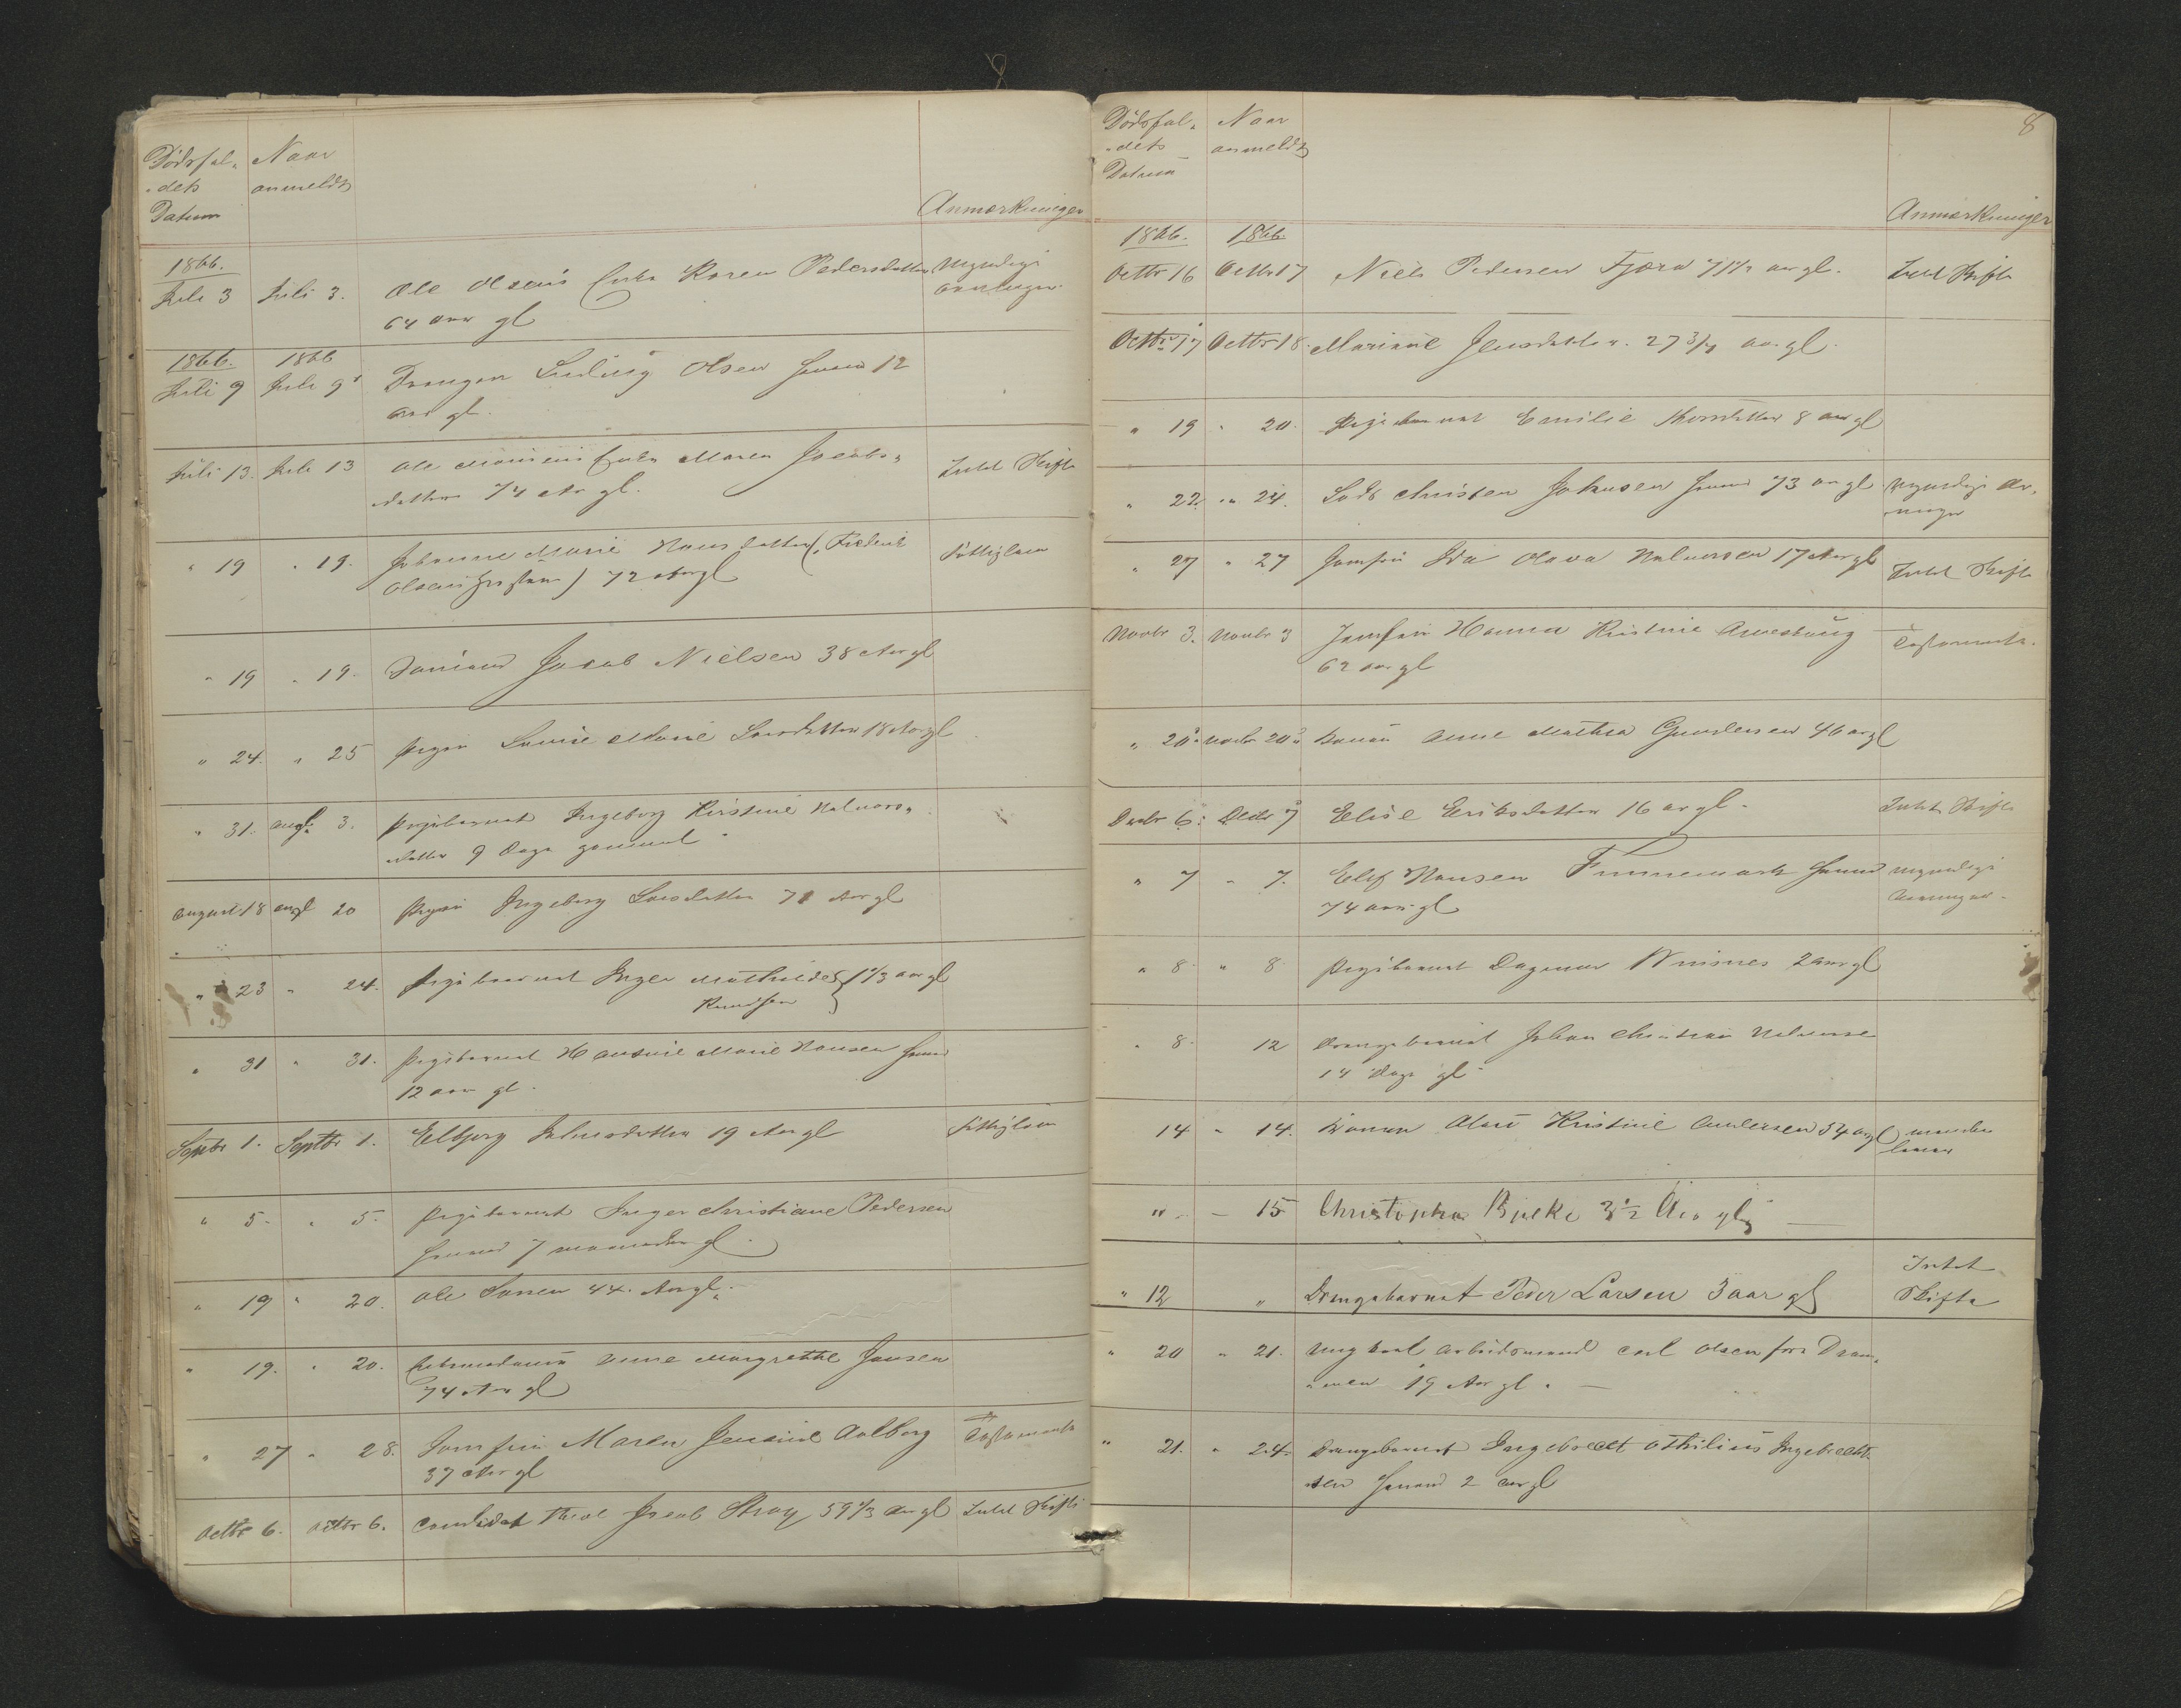 Dödsfal-
-dets
Datum
Naar
anmeldt
Anmærkninger
1866.
Juli 3 Juli 3. Ole Olsens Enke Karen Pedersdatter Myndige
64 aar gl Arvinger
1866. 1866
Juli 9 Juli 9 Drengen Ludvig Olsen 12
aar gl.
Juli 13. Juli 13 Ole Enke Maren Jacobs-
datter 74 Aar gl. Intet Skifte
" 19 " 19. Johanne Marie Hansdatter (Frederik
Olsens ) 72 Aar gl Fattiglem
" 19 " 19. Jacob Nielsen 38 Aar gl
" 24. " 25 Pigen Lovise Marie Larsdatter 18 Aar gl
" 31. Augt. 3. Pigebarnet Ingeborg Kirstine Halvors-
datter 9 Dage gammel
August 18 Augt 20 Pigen Ingeborg Larsdatter 71 Aar gl
" 23 " 24. Pigebarnet Inger Mathilde } 1 1/3 aar gl
Knudsen
" 31 " 31. Pigebarnet Hansine Marie Hansen
12 aar gl.
Septbr 1. Septbr 1. Elbjørg 19 Aar gl Fattiglem
" 5. " 5. Pigebarnet Inger Christiane Pedersen
7 maaneder gl.
" 19 " 20. Ole Larsen 44. Aar gl.
" 19. " 20. Enkemadame Anne Margrethe Jansen
74 Aar gl
" 27 " 28. Jomfru Maren Aalborg Testamente
37 Aar gl
Octbr 6. Octbr 6. Candidat Theol Jacob 59 1/3 Aar gl Intet Skifte
8
Dödsfal-
-dets
Datum
Naar
anmeldt
Anmærkninger
1866. 1866.
Octbr 16 Octbr 17 Niels Pedersen Fjære 71 1/2 aar gl. Intet Skifte
Octbr 17 Octbr 18. Mariane Jensdatter. 27 3/4 aar gl.
" 19 " 20. Pigebarnet Emilie 8 aar gl
" 22. " 24. Lods Christen Johnsen 73 aar gl Myndige Ar-
vinger
" 27 " 27 Jomfru Ida Olava Halvorsen 17 Aar gl Intet Skifte
Novbr 3. Novbr 3 Jomfru Hanna Kirstine
62 aar gl Testamente.
" 20 Novbr 20 Konen Anne Mathea Gundersen 46 aar gl
Decbr 6. Decbr 7 Elise Eriksdatter 16 aar gl. Intet Skifte
" 7 " 7. Elef Hansen Finnemark Myndige
74 aar gl Arvinger.
" 8. " 8. Pigebarnet Dagmar 2 aar gl
" 8. 12 Drengebarnet Johan Christian Halvorsen
14 Dage gl.
14 " 14. Konen Kristine Andersen 54 aar gl manden
lever
" — 15 Christopher Bjelke 3 1/2 Aar gl —
" 12 " Drengebarnet Peder Larsen 3 aar gl Intet
Skifte
" 20 " 21. Ungkarl Arbeidsmand Carl Olsen fra Dram-
-men 19 Aar gl. —
" 21. " 24. Drengebarnet Ingebrecht Othilius Ingebrecht-
sen 2 aar gl